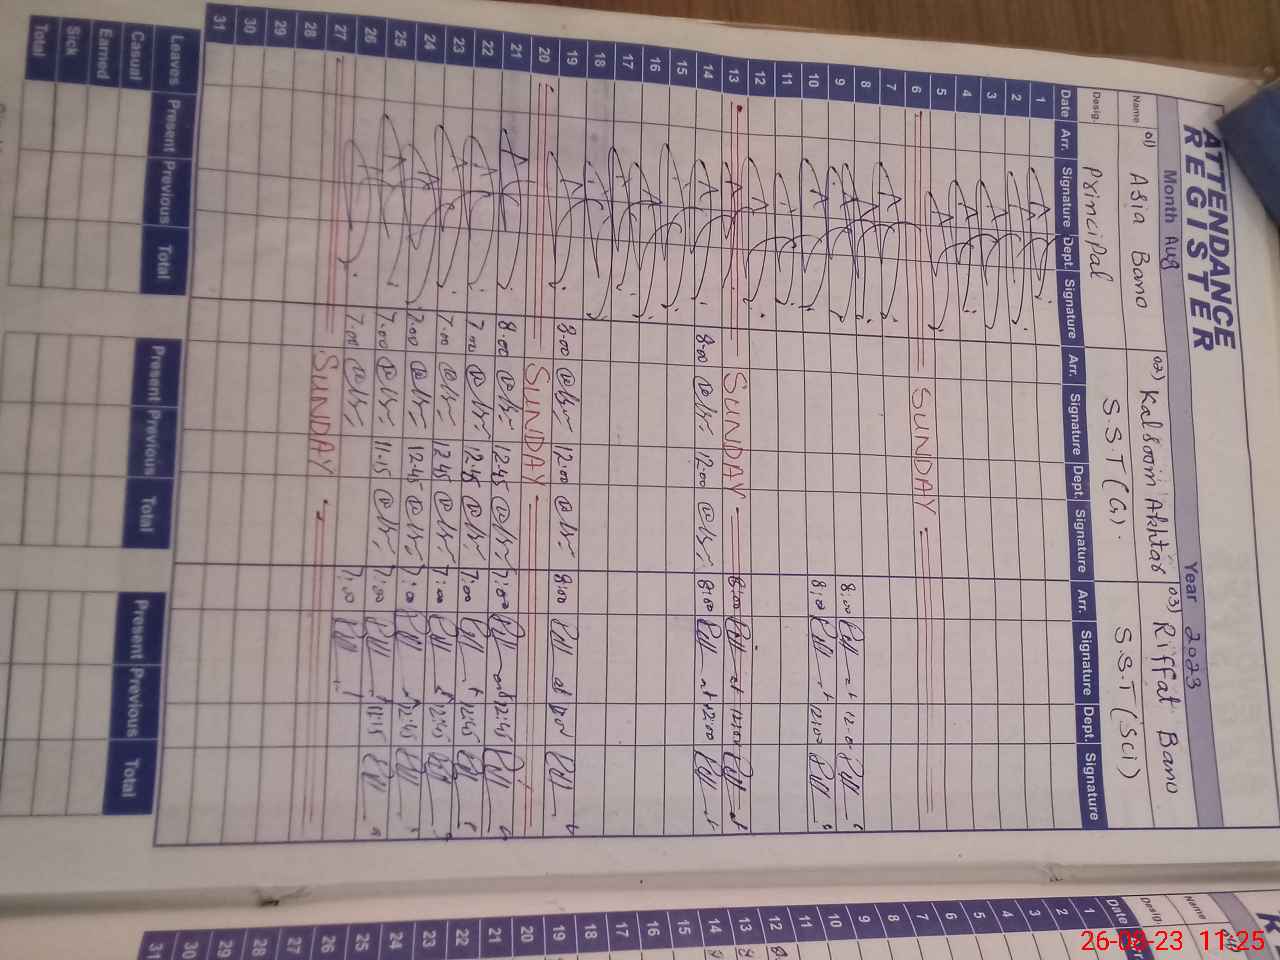 ATTENDANCE
REGISTER
Month Aug Year 2023
Name 01) Asia Bano 02) Kalsoom Akhtar 03) Riffat Bano
Desig. Principal S.S.T (G). S.S.T (Sci)
Date Arr. Signature Dept. Signature Arr. Signature Dept. Signature Arr. Signature Dept. Signature
1
2
3
4
5
6 SUNDAY
7
8
9 8:00 at 12:00
10 8:00 at 12:00
11
12
13 SUNDAY 8:00 at 12:00
14 8:00 12:00 8:00 at 12:00
15
16
17
18
19 8:00 12:00 8:00 at
20 SUNDAY
21 8:00 12:45 7:00 12:45
22 7:00 12:45 7:00 12:45
23 7:00 12:45 7:00 12:45
24 7:00 12:45 7:00 12:45
25 7:00 11:15 7:00 11:15
26 7:00 7:00
27 SUNDAY
28
29
30
31
Leaves Present Previous Total Present Previous Total Present Previous Total
Casual
Earned
Sick
Total
Name
Desig.
Date
1
2
3
4
5
6
7
8
9
10
11
12
13
14
15
16
17
18
19
20
21
22
23
24
25
26
27
28
29
30
31
26-08-23 11:25